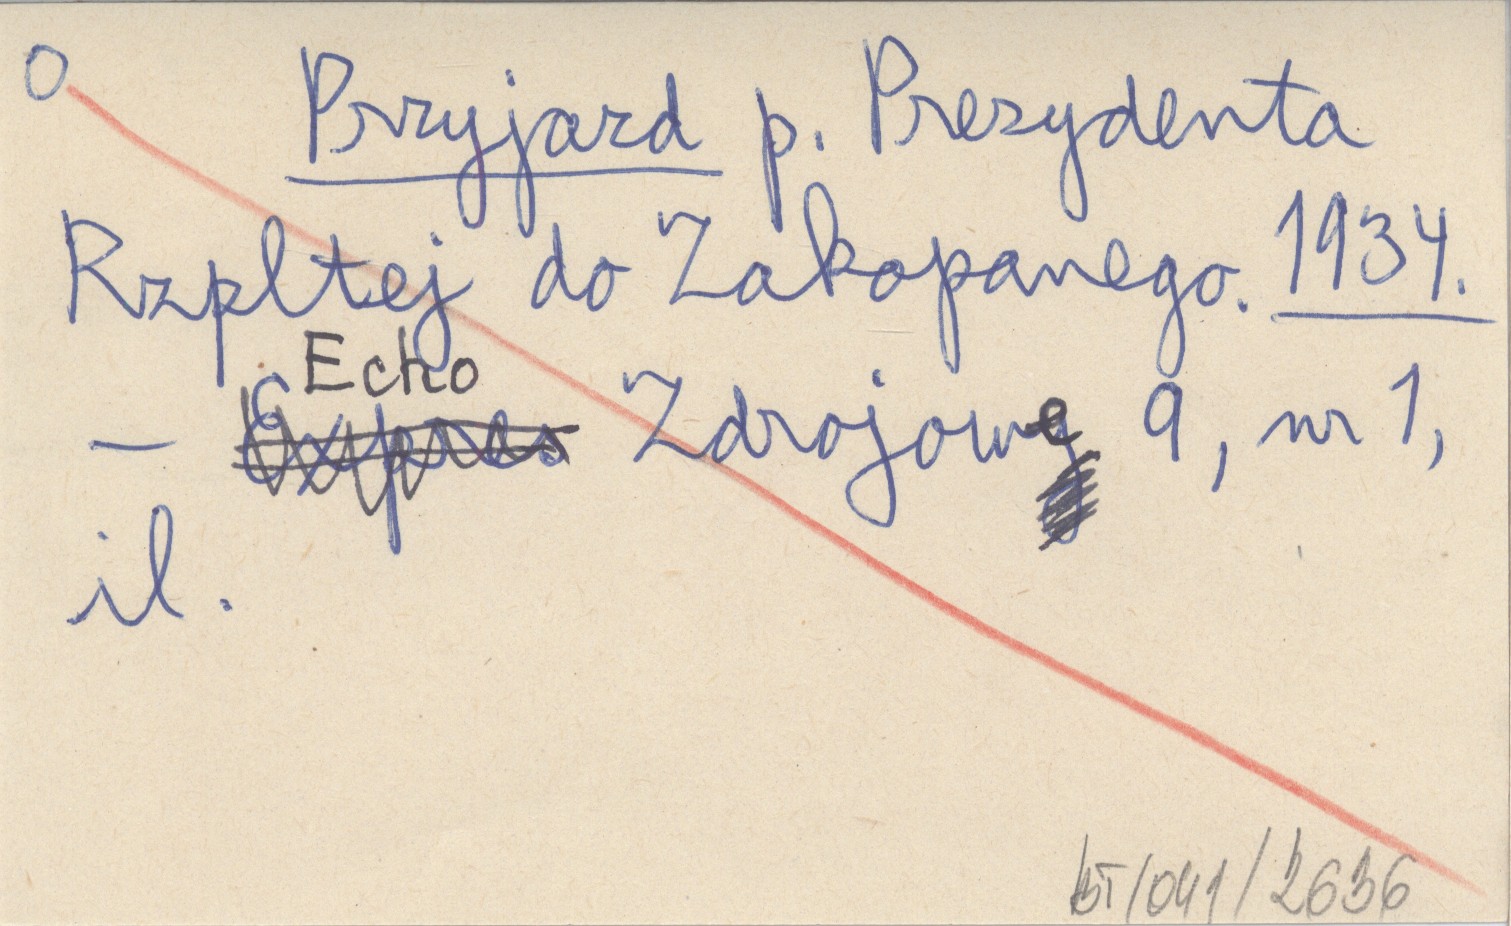 O Przyjazd p. Prezydenta
Rzpltej do Zakopanego. 1934.
Echo
— Expres Zdrojowe 9, nr 1,
il.
BT/041/2636